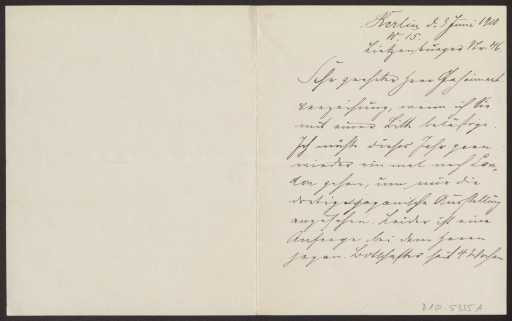 Berlin d. 9 Juni 1910
W. 15.
Lietzenburger Str. 46
Sehr geehrter Herr Geheimrat
Verzeihung, wenn ich Sie
mit einer Bitte belästige.
Ich möchte dieses Jahr gern
wieder ein mal nach Lon-
don gehen, um mir die
dortige japanische Ausstellung
anzusehen. Leider ist eine
Anfrage bei dem Herrn
japan. Botschafter seit 4 Wochen